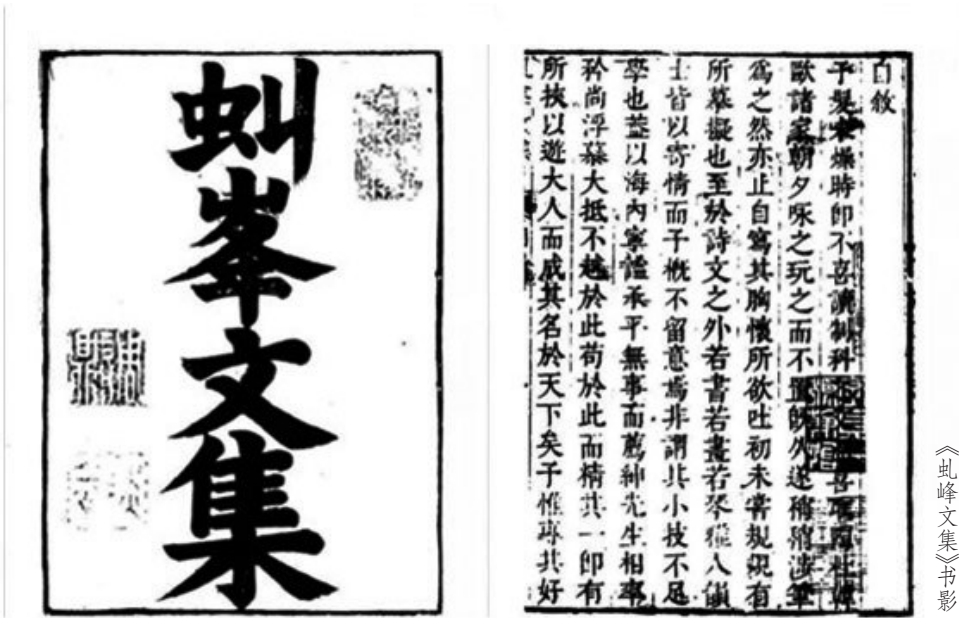 虯峯文集
自敘
予髮未燥時即不喜讀制科喜
歐諸家朝夕咏之玩之而不置旣久遂稍稍涉筆
爲之然亦止自寫其胸懷所欲吐初未嘗規規有
所摹擬也至於詩文之外若書若畫若琴雅人韻
士皆以寄情而予概不留意焉非謂其小技不足
學也蓋以海內寧謐承平無事而薦紳先生相率
矜尚浮慕大抵不越於此苟於此而精其一即有
所挾以遊大人而成其名於天下矣予惟專其好
《虬峰文集》书影